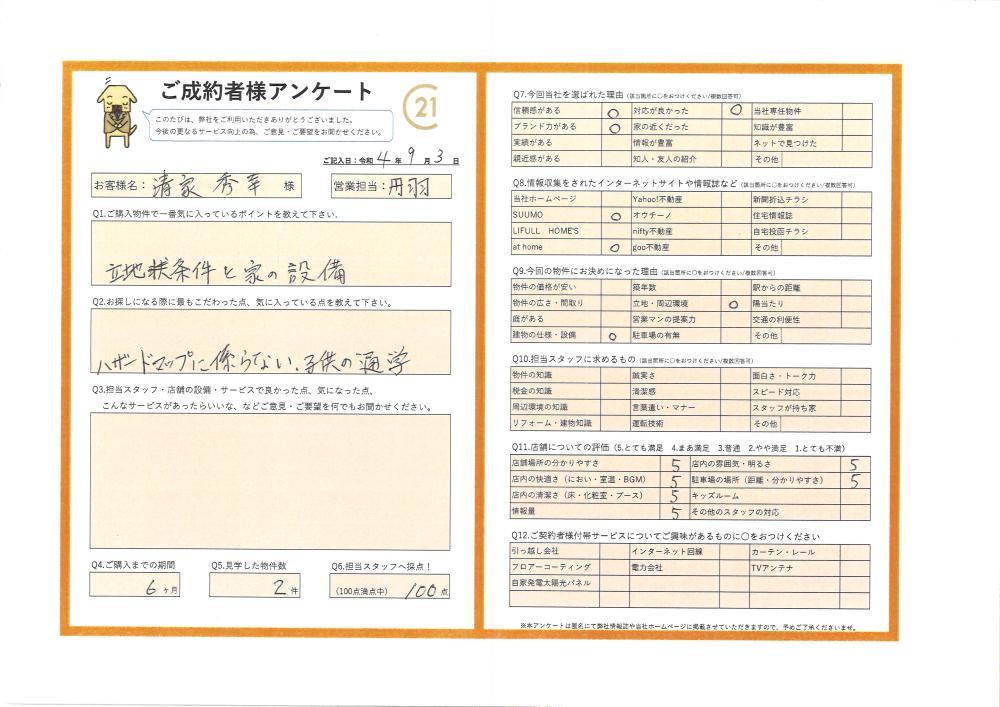 ご成約者様アンケート
21
このたびは、弊社をご利用いただきありがとうございました。
今後の更なるサービス向上の為、ご意見・ご要望をお聞かせください。
ご記入日：令和 4 年 9 月 3 日
お客様名： 清家 秀幸 様 営業担当： 丹羽
Q1.ご購入物件で一番気に入っているポイントを教えて下さい.
立地条件と家の設備
Q2.お探しになる際に最もこだわった点、気に入っている点を教えて下さい。
ハザードマップに係らない、子供の通学
Q3.担当スタッフ・店舗の設備・サービスで良かった点、気になった点、
こんなサービスがあったらいいな、などご意見・ご要望を何でもお聞かせください。
Q4.ご購入までの期間 Q5.見学した物件数 Q6.担当スタッフへ採点！
6 ヶ月 2 件 (100点満点中) 100 点
Q7.今回当社を選ばれた理由 (該当箇所に○をおつけください/複数回答可)
信頼感がある ○ 対応が良かった ○ 当社専任物件
ブランド力がある ○ 家の近くだった 知識が豊富
実績がある 情報が豊富 ネットで見つけた
親近感がある 知人・友人の紹介 その他
Q8.情報収集をされたインターネットサイトや情報誌など (該当箇所に○をおつけください/複数回答可)
当社ホームページ Yahoo!不動産 新聞折込チラシ
SUUMO ○ オウチーノ 住宅情報誌
LIFULL HOME'S nifty不動産 自宅投函チラシ
at home ○ goo不動産 その他
Q9.今回の物件にお決めになった理由 (該当箇所に○をおつけください/複数回答可)
物件の価格が安い 築年数 駅からの距離
物件の広さ・間取り 立地・周辺環境 ○ 陽当たり
庭がある 営業マンの提案力 交通の利便性
建物の仕様・設備 ○ 駐車場の有無 その他
Q10.担当スタッフに求めるもの (該当箇所に○をおつけください/複数回答可)
物件の知識 誠実さ 面白さ・トーク力
税金の知識 清潔感 スピード対応
周辺環境の知識 言葉遣い・マナー スタッフが持ち家
リフォーム・建物知識 運転技術 その他
Q11.店舗についての評価 (5.とても満足 4.まあ満足 3.普通 2.やや満足 1.とても不満)
店舗場所の分かりやすさ 5 店内の雰囲気・明るさ 5
店内の快適さ (におい・室温・BGM) 5 駐車場の場所 (距離・分かりやすさ) 5
店内の清潔さ (床・化粧室・ブース) 5 キッズルーム
情報量 5 その他のスタッフの対応
Q12.ご契約者様付帯サービスについてご興味があるものに○をおつけください
引っ越し会社 インターネット回線 カーテン・レール
フロアーコーティング 電力会社 TVアンテナ
自家発電太陽光パネル
※本アンケートは匿名にて弊社情報誌や当社ホームページに掲載させていただきますので、予めご了承くださいませ。